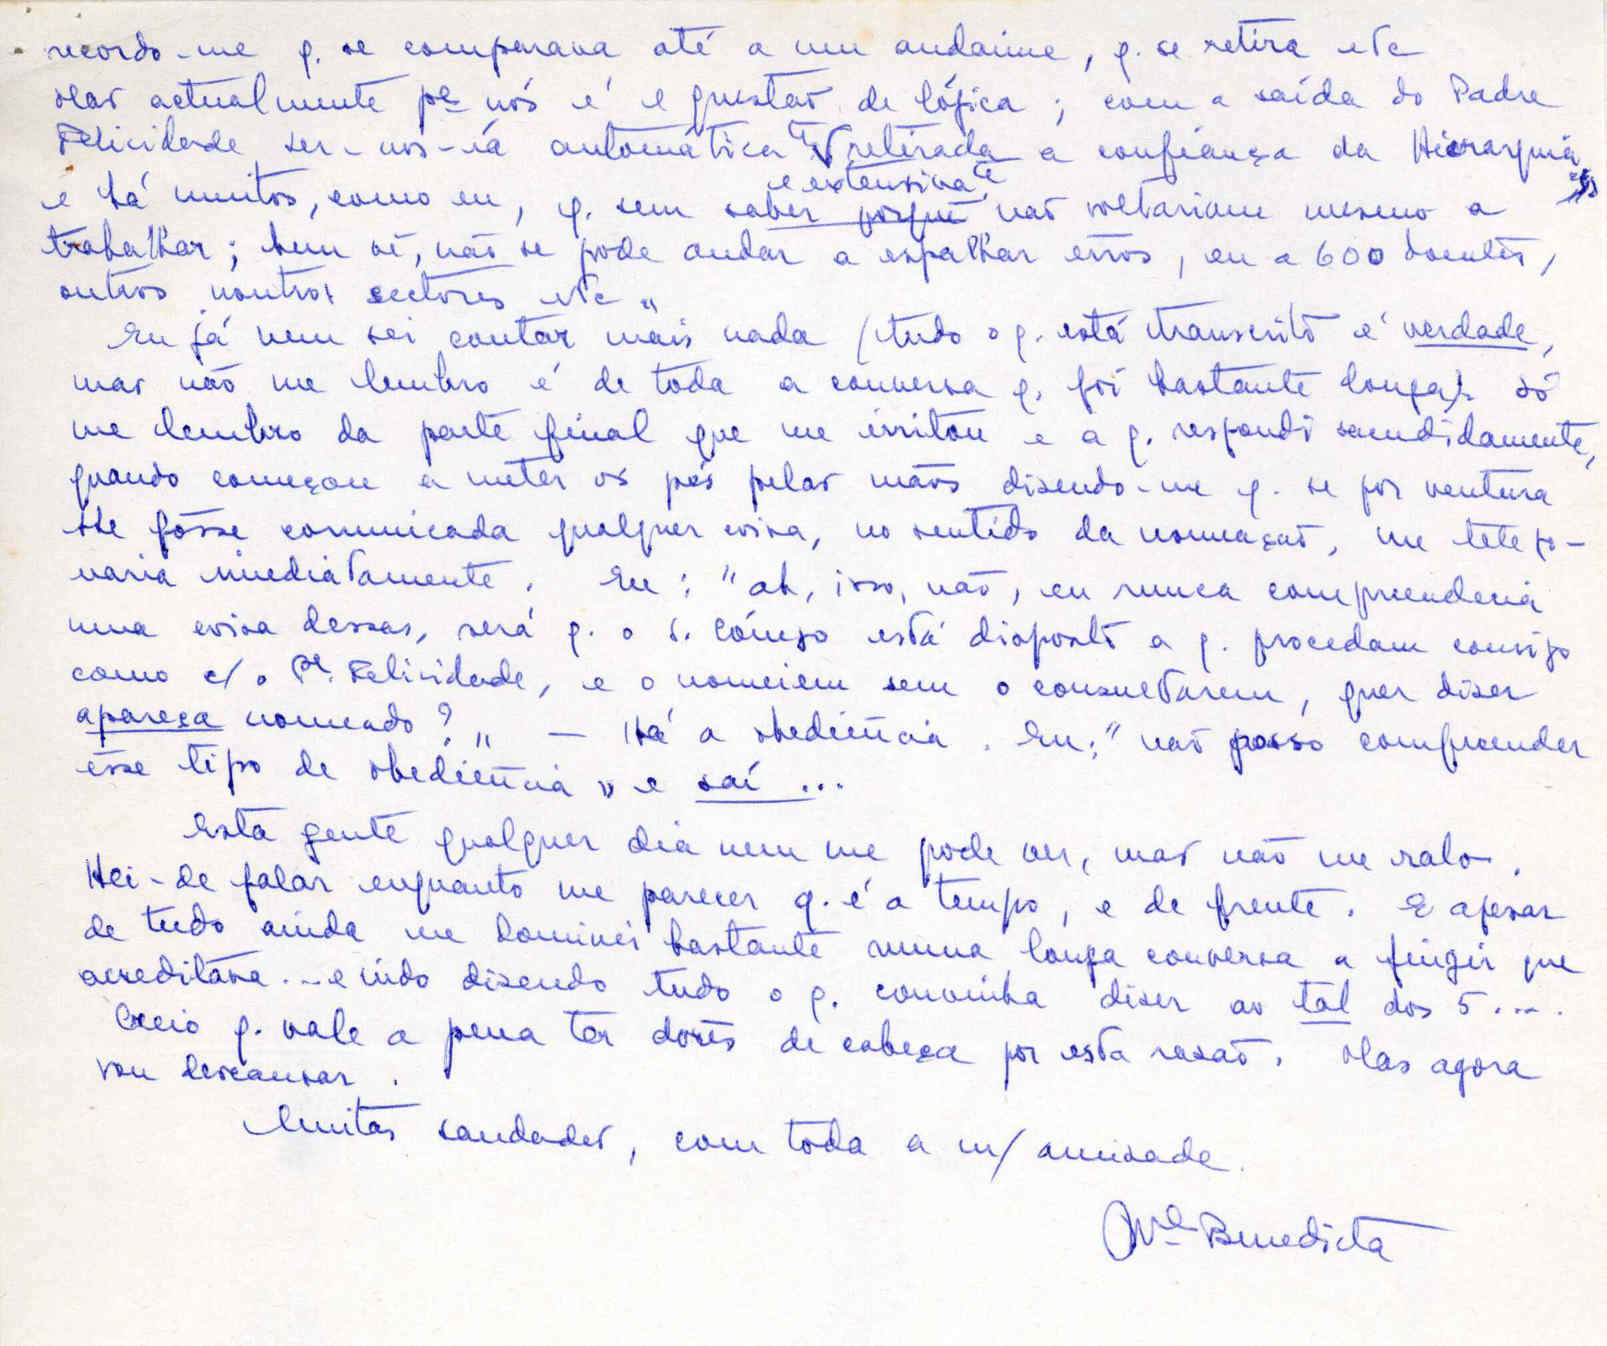 recordo-me q. se comparava até a um andaime, q. se retira etc
Mas actualmente pª nós é 1 questão de lógica; com a saída do Padre
Felicidade ser-nos-iá automáticaᵗᵉ retirada a confiança da Hierarquia
e extensivaᵗᵉ
e há muitos, como eu, q. sem saber porquê não voltariam mesmo a
trabalhar; bem vê, não se pode andar a espalhar erros, eu a 600 doentes,
outros noutros sectores etc"
Eu já nem sei contar mais nada (tudo o q. está transcrito é verdade,
mas não me lembro é de toda a conversa q. foi bastante longa). Só
me lembro da parte final que me irritou e a q. respondi sacudidamente,
quando começou a meter os pés pelas mãos dizendo-me q. se por ventura
lhe fôsse comunicada qualquer coisa, no sentido da nomeação, me telefo-
naria imediatamente. Eu: "ah, isso, não, eu nunca compreenderia
uma coisa dessas, será q. o S. Cónego está disposto a q. procedam consigo
como c/ o Pe. Felicidade, e o nomeiem sem o consultarem, quer dizer
apareça nomeado?" — Há a obediência. Eu: "não posso compreender
êsse tipo de obediência" e saí ...
Esta gente qualquer dia nem me pode ver, mas não me ralo.
Hei-de falar enquanto me parecer q. é a tempo, e de frente. E apesar
de tudo ainda me dominei bastante numa longa conversa a fingir que
acreditava... e indo dizendo tudo o q. convinha dizer ao tal dos 5....
Creio q. vale a pena ter dores de cabeça por esta razão. Mas agora
vou descansar.
Muitas saudades, com toda a m/ amizade.
Mª Benedicta